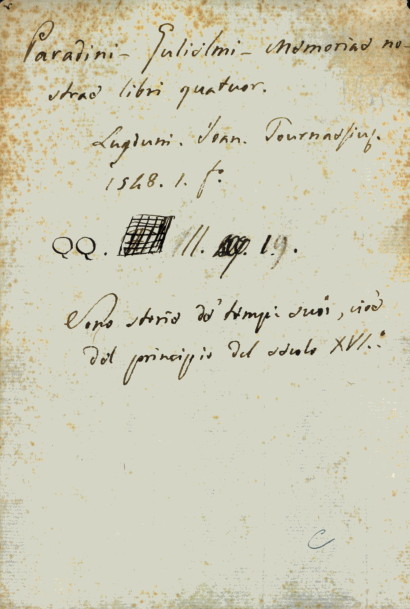 Paradini - Gulielmi - Memoriae no-
strae libri quatuor.
Lugduni. Ioan. Tournaesius.
1548. 1. f.o
QQ. III. 19.
Sono storie de' tempi suoi, cioè
del principio del secolo XVI.o
C